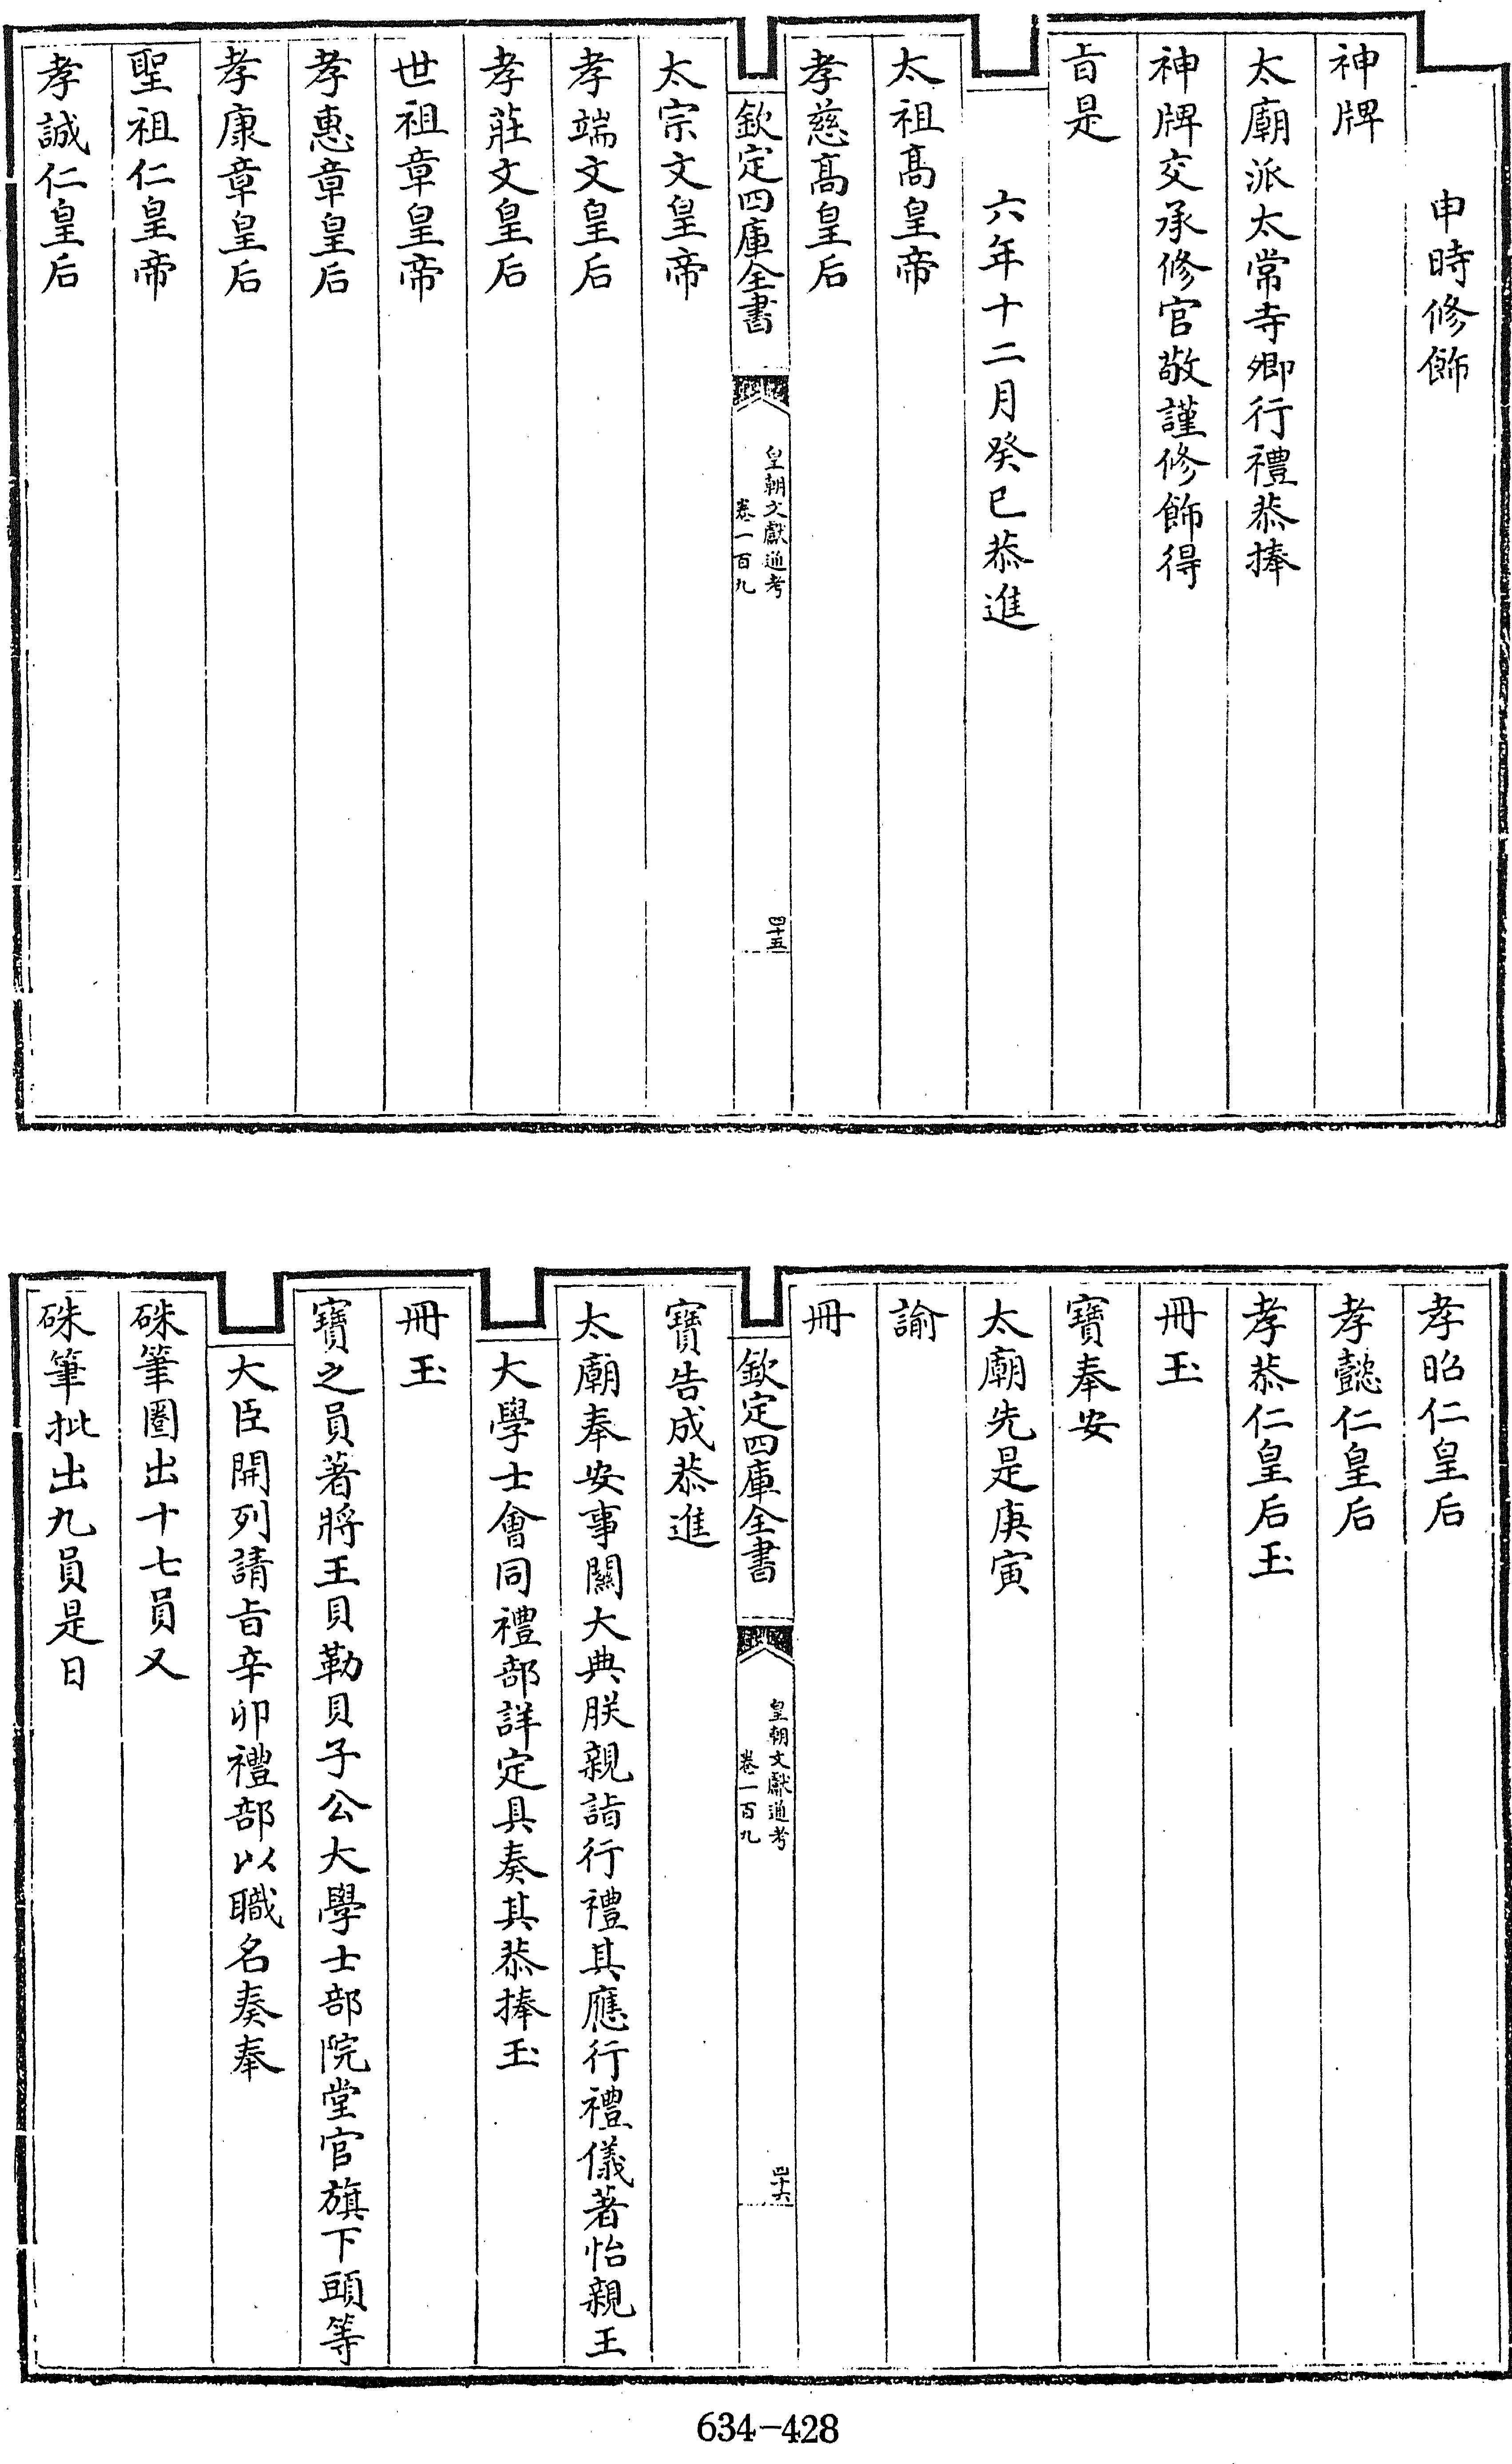 申時修飾
神牌
太廟派太常寺卿行禮恭捧
神牌交承修官敬謹修飾得
㫖是
六年十二月癸巳恭進
太祖髙皇帝
孝慈髙皇后
欽定四庫全書
皇朝文獻通考
卷一百九
四十五
太宗文皇帝
孝端文皇后
孝莊文皇后
世祖章皇帝
孝惠章皇后
孝康章皇后
聖祖仁皇帝
孝誠仁皇后
孝昭仁皇后
孝懿仁皇后
孝恭仁皇后玉
冊玉
寶奉安
太廟先是庚寅
諭
冊
欽定四庫全書
皇朝文獻通考
卷一百九
四十六
寶告成恭進
太廟奉安事關大典朕親詣行禮其應行禮儀著怡親王
大學士會同禮部詳定具奏其恭捧玉
冊玉
寶之員著將王貝勒貝子公大學士部院堂官旗下頭等
大臣開列請㫖辛卯禮部以職名奏奉
硃筆圈出十七員又
硃筆批出九員是日
634-428